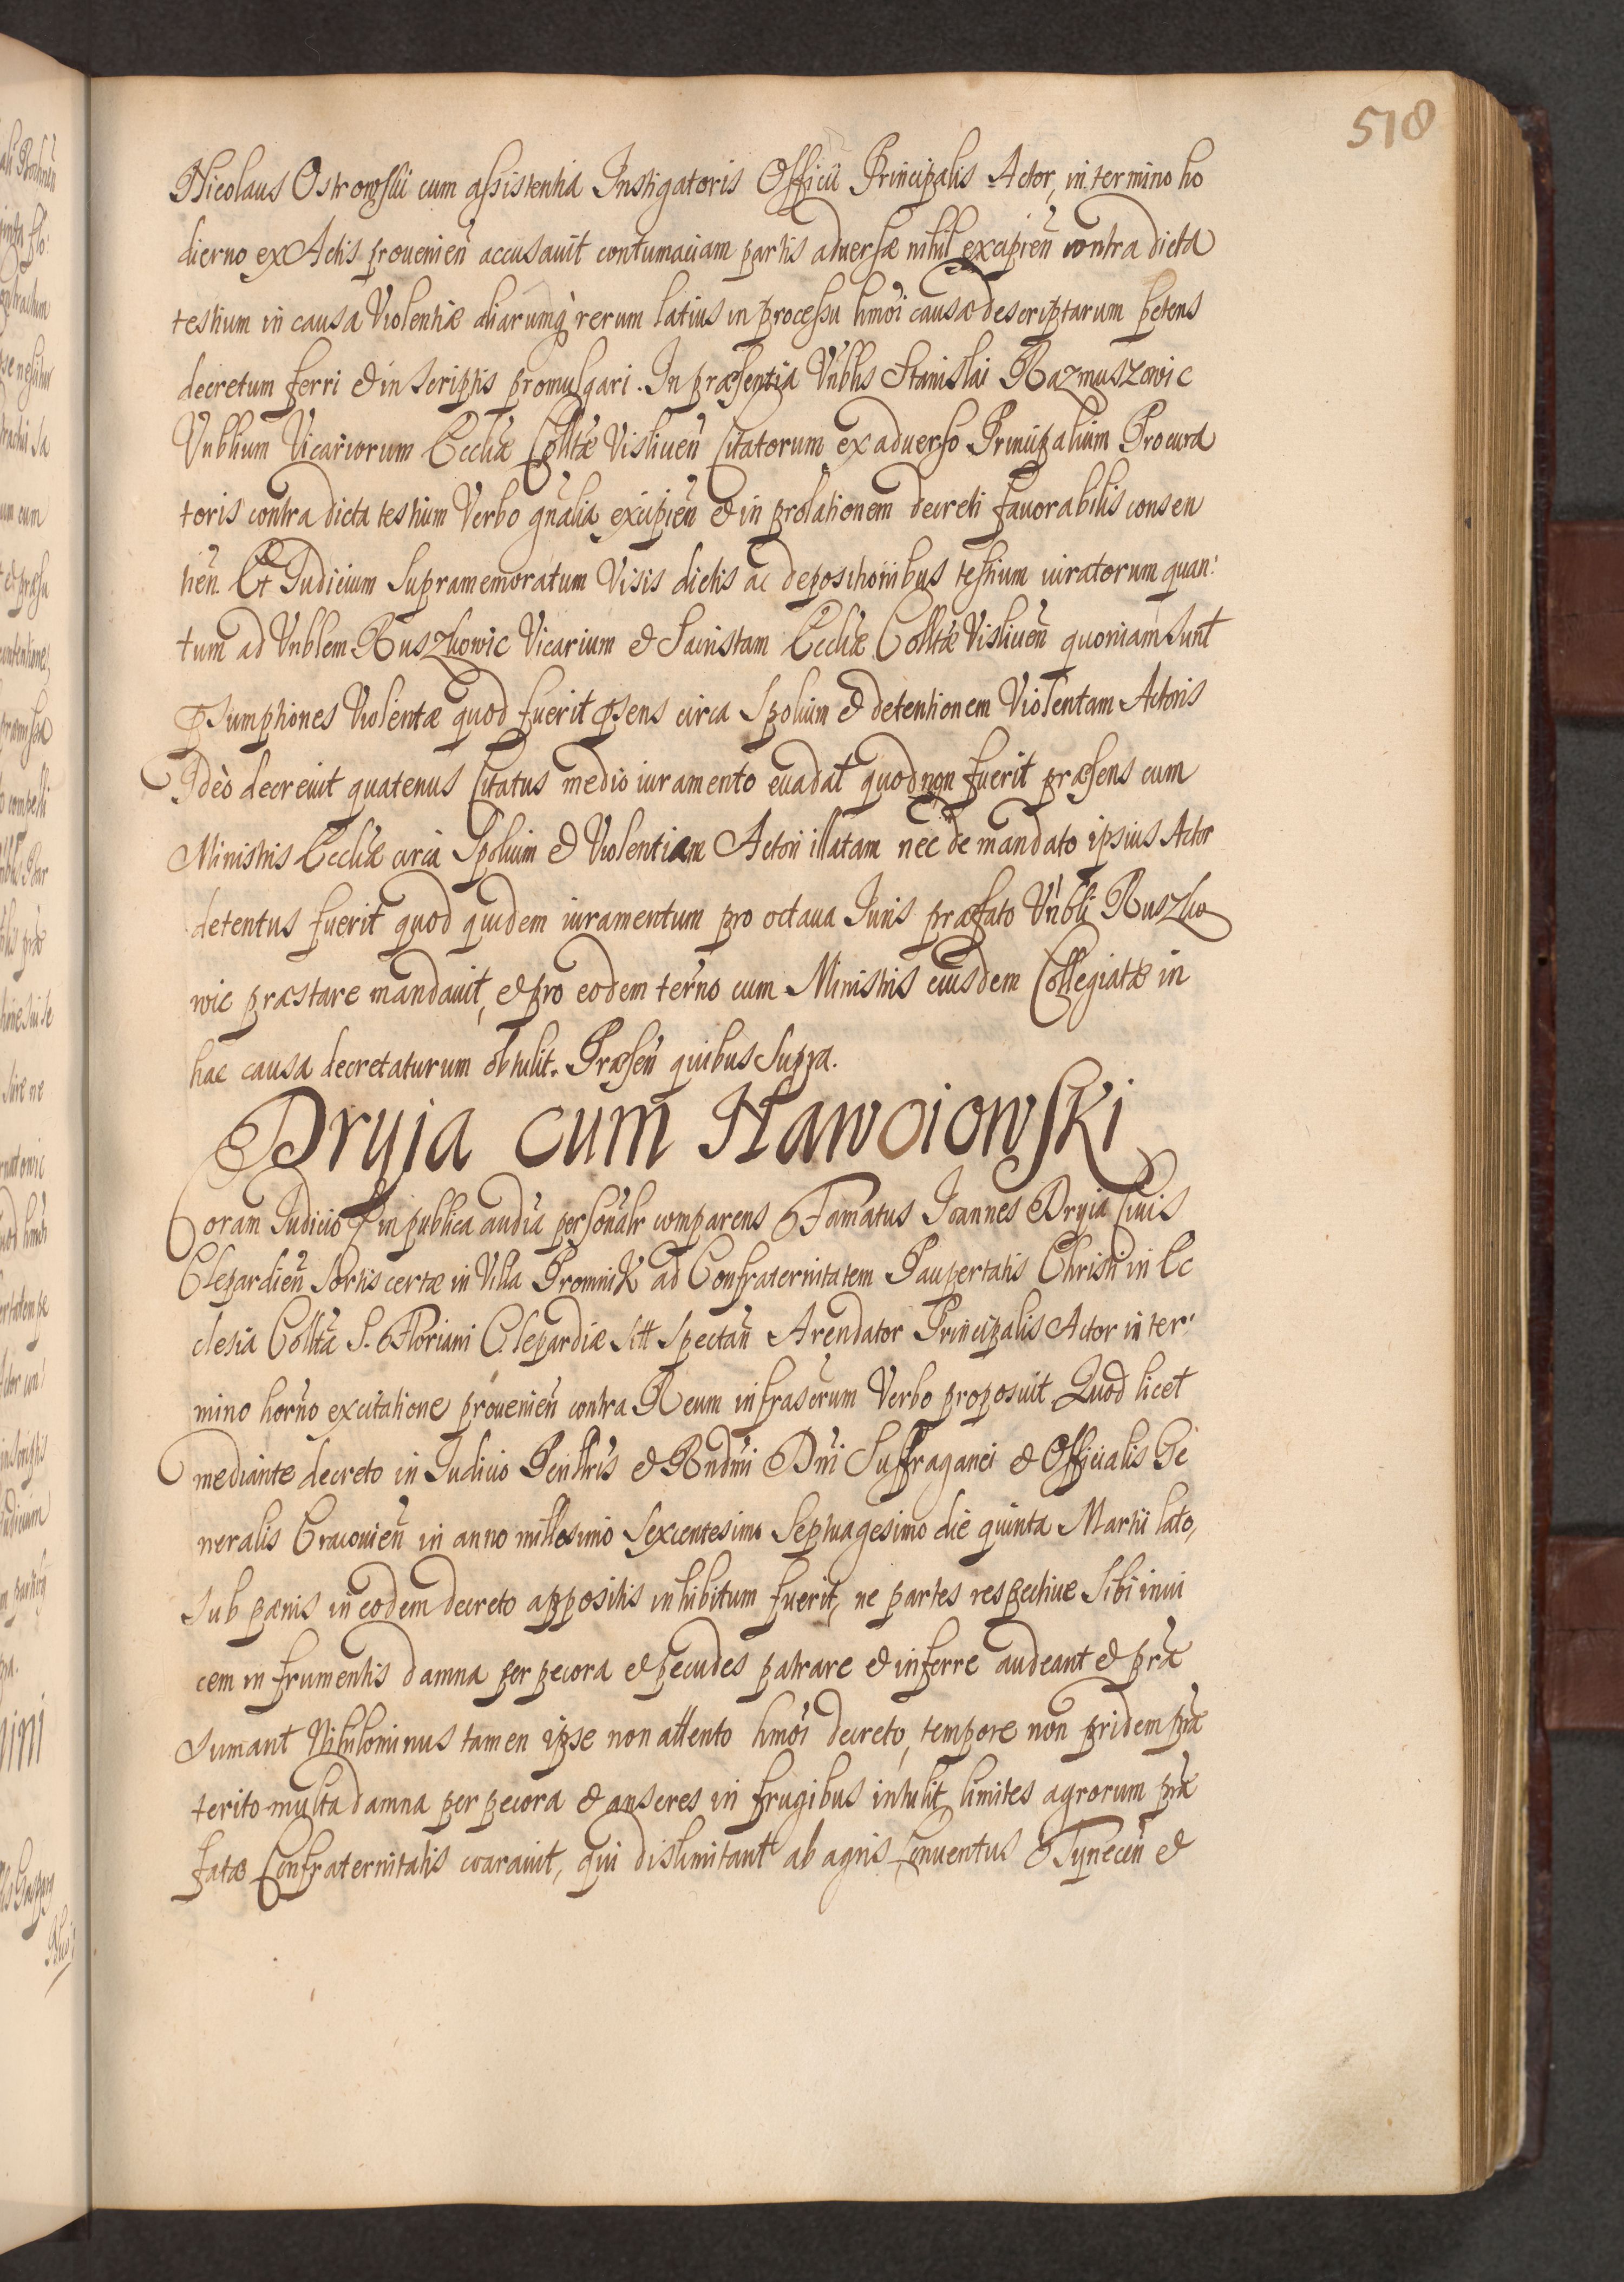 518
Nicolaus Ostrowskii cum assistentia Instigatoris Officii Principalis Actor, in termino ho
dierno ex Actis prouenieñ accusauit contumaciam partis aduersæ nihil excipieñ contra dicta
testium in causa Violentiæ aliarumq̀ rerum latius in processu hmõi causæ descriptarum petens
decretum ferri & in scriptis promulgari. In præsentia Vnblis Stanislai Razmuszowic
Vnblium Vicariorum Eccliæ Colltæ Visliceñ Citatorum ex aduerso Principalium Procura
toris contra dicta testium Verbo gñalia excipieñ & in prolationem decreti fauorabilis consen
tieñ. Et Iudicium Supramemoratum Visis dictis ac depositionibus testium iuratorum quan:
tum ad Vnblem Ruszkowic Vicarium & Sacristam Eccliæ Colltæ Visliceñ quoniam sunt
Psumptiones Violentæ quod fuerit Psens circa Spolium & detentionem Violentam Actoris
Ideò decreuit quatenus Citatus medio iuramento euadat quod non fuerit præsens cum
Ministris Eccliæ circa Spolium & Violentiam Actori illatam nec de mandato ipsius Actor
detentus fuerit quod quidem iuramentum pro octaua Iuris præfato Vnbli Ruszko
wic præstare mandauit, & pro eodem terño cum Ministris eiusdem Collegiatæ in
hac causa decretaturum obtulit. Præseñ quibus Supra.
Dryia cum Hawoiowski
Coram Iudicio P in publica audĩa personalr comparens Famatus Ioannes Dryia Ciuis
Clepardieñ Sortis certæ in Villa Promnik ad Confraternitatem Paupertatis Christi in Ec
clesia Colltã S. Floriani Clepardiæ Sitt Spectañ Arendator Principalis Actor in ter:
mino horño ex citatione prouenieñ contra Reum infrascrum Verbo proposuit. Quod licet
mediante decreto in Iudicio Perillris & Rndmi Dñi Suffraganei & Officialis Ge
neralis Cracouieñ in anno millesimo Sexcentesimo Septuagesimo die quinta Martii lato,
sub pænis in eodem decreto appositis inhibitum fuerit, ne partes respectiue Sibi inui
cem in frumentis damna per pecora & pecudes patrare & inferre audeant & præ
sumant Nihilominus tamen ipse non attento hmõi decreto, tempore non pridem præ
terito multa damna per pecora & anseres in frugibus intulit limites agrorum præ
fatæ Confraternitatis coarauit, qui dislimitant ab agris Conuentus Tyneceñ &